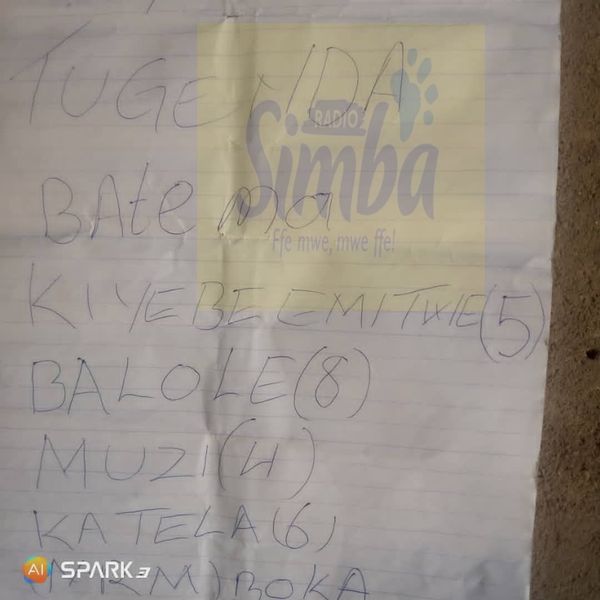 TUGENDA
RADIO
Simba
BAte ma
Ffe mwe, mwe ffe!
KIYEBE EMITWE(5)
BALOLE(8)
MUZI(4)
KATELA(6)
BOKA
AI SPARK 3